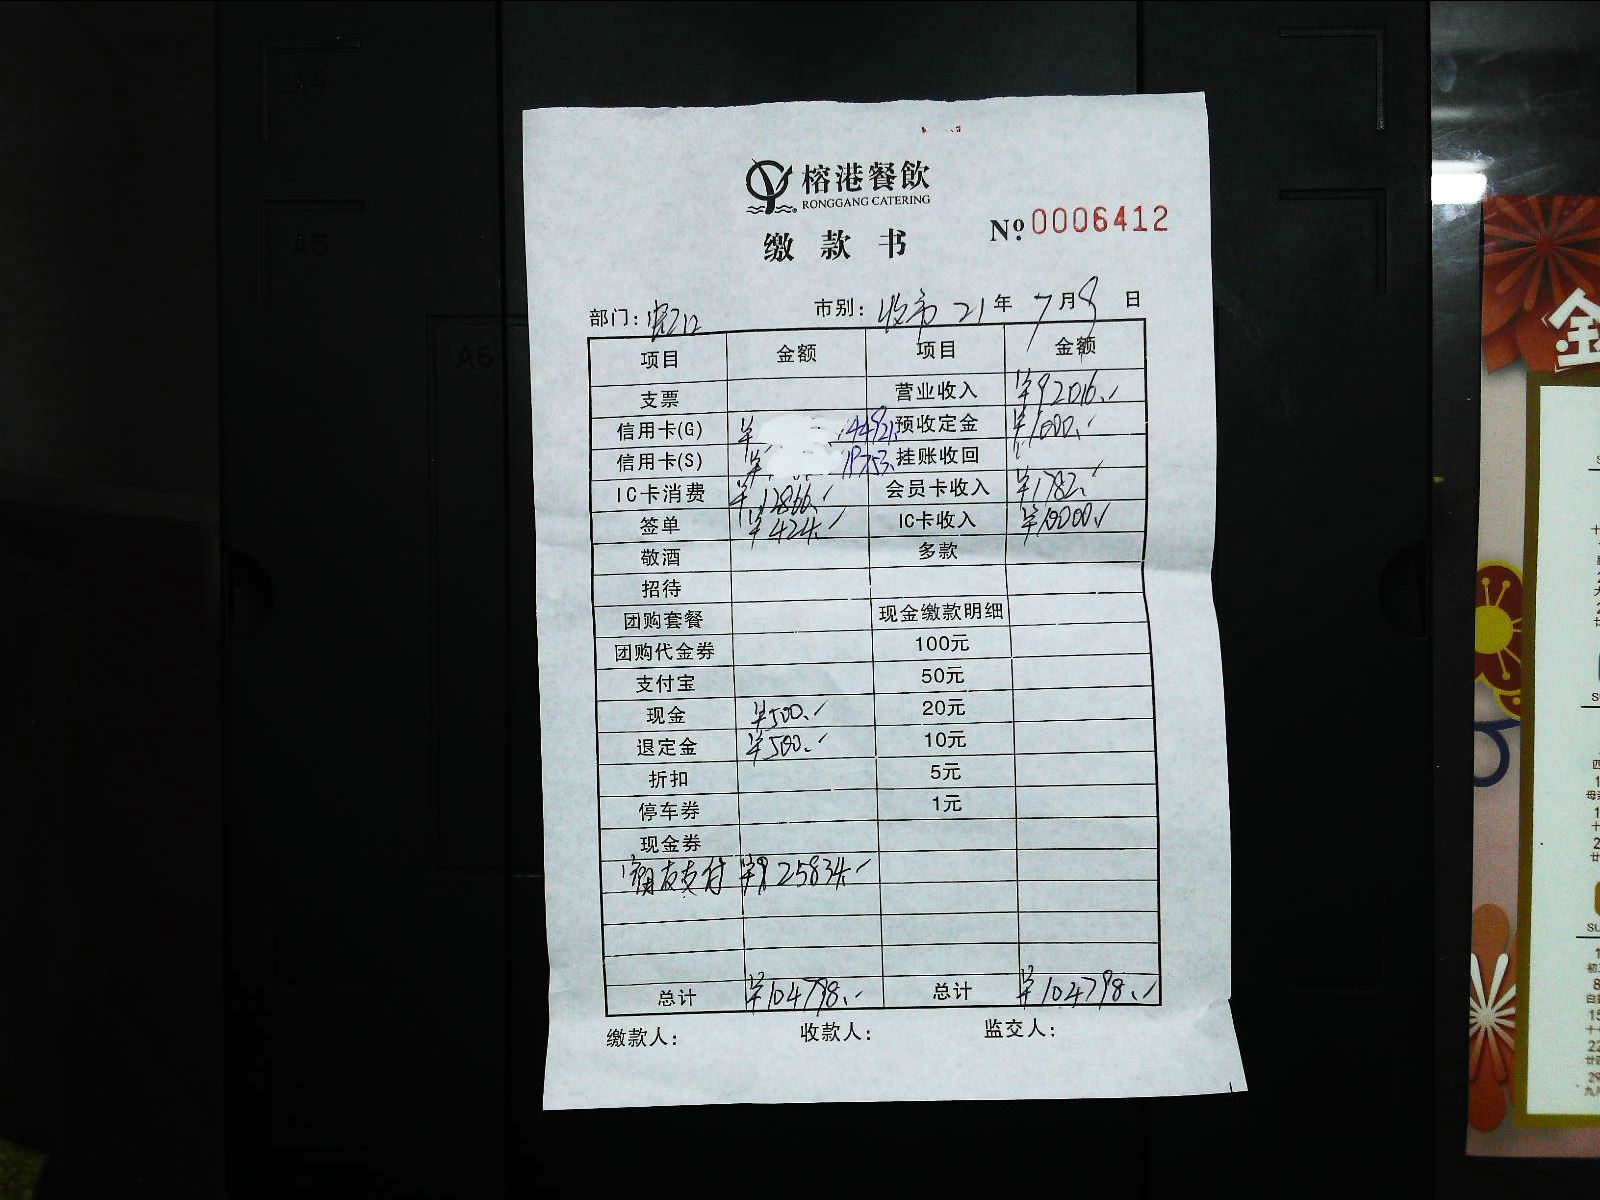 榕港餐飲
RONGGANG CATERING
缴款书
No. 0006412
部门: 市别: 收市 21年 7月9日
项目 金额 项目 金额
支票 营业收入 ¥92016.
信用卡(G) ¥ 44921. 预收定金 ¥1000.
信用卡(S) ¥ 19753. 挂账收回
IC卡消费 ¥12866. 会员卡收入 ¥1782.
签单 ¥424. IC卡收入 ¥10000.
敬酒 多款
招待
团购套餐 现金缴款明细
团购代金券 100元
支付宝 50元
现金 ¥500. 20元
退定金 ¥500. 10元
折扣 5元
停车券 1元
现金券
朋友支付 25834.
总计 ¥104798. 总计 ¥104798.
缴款人: 收款人: 监交人:
A5
A6